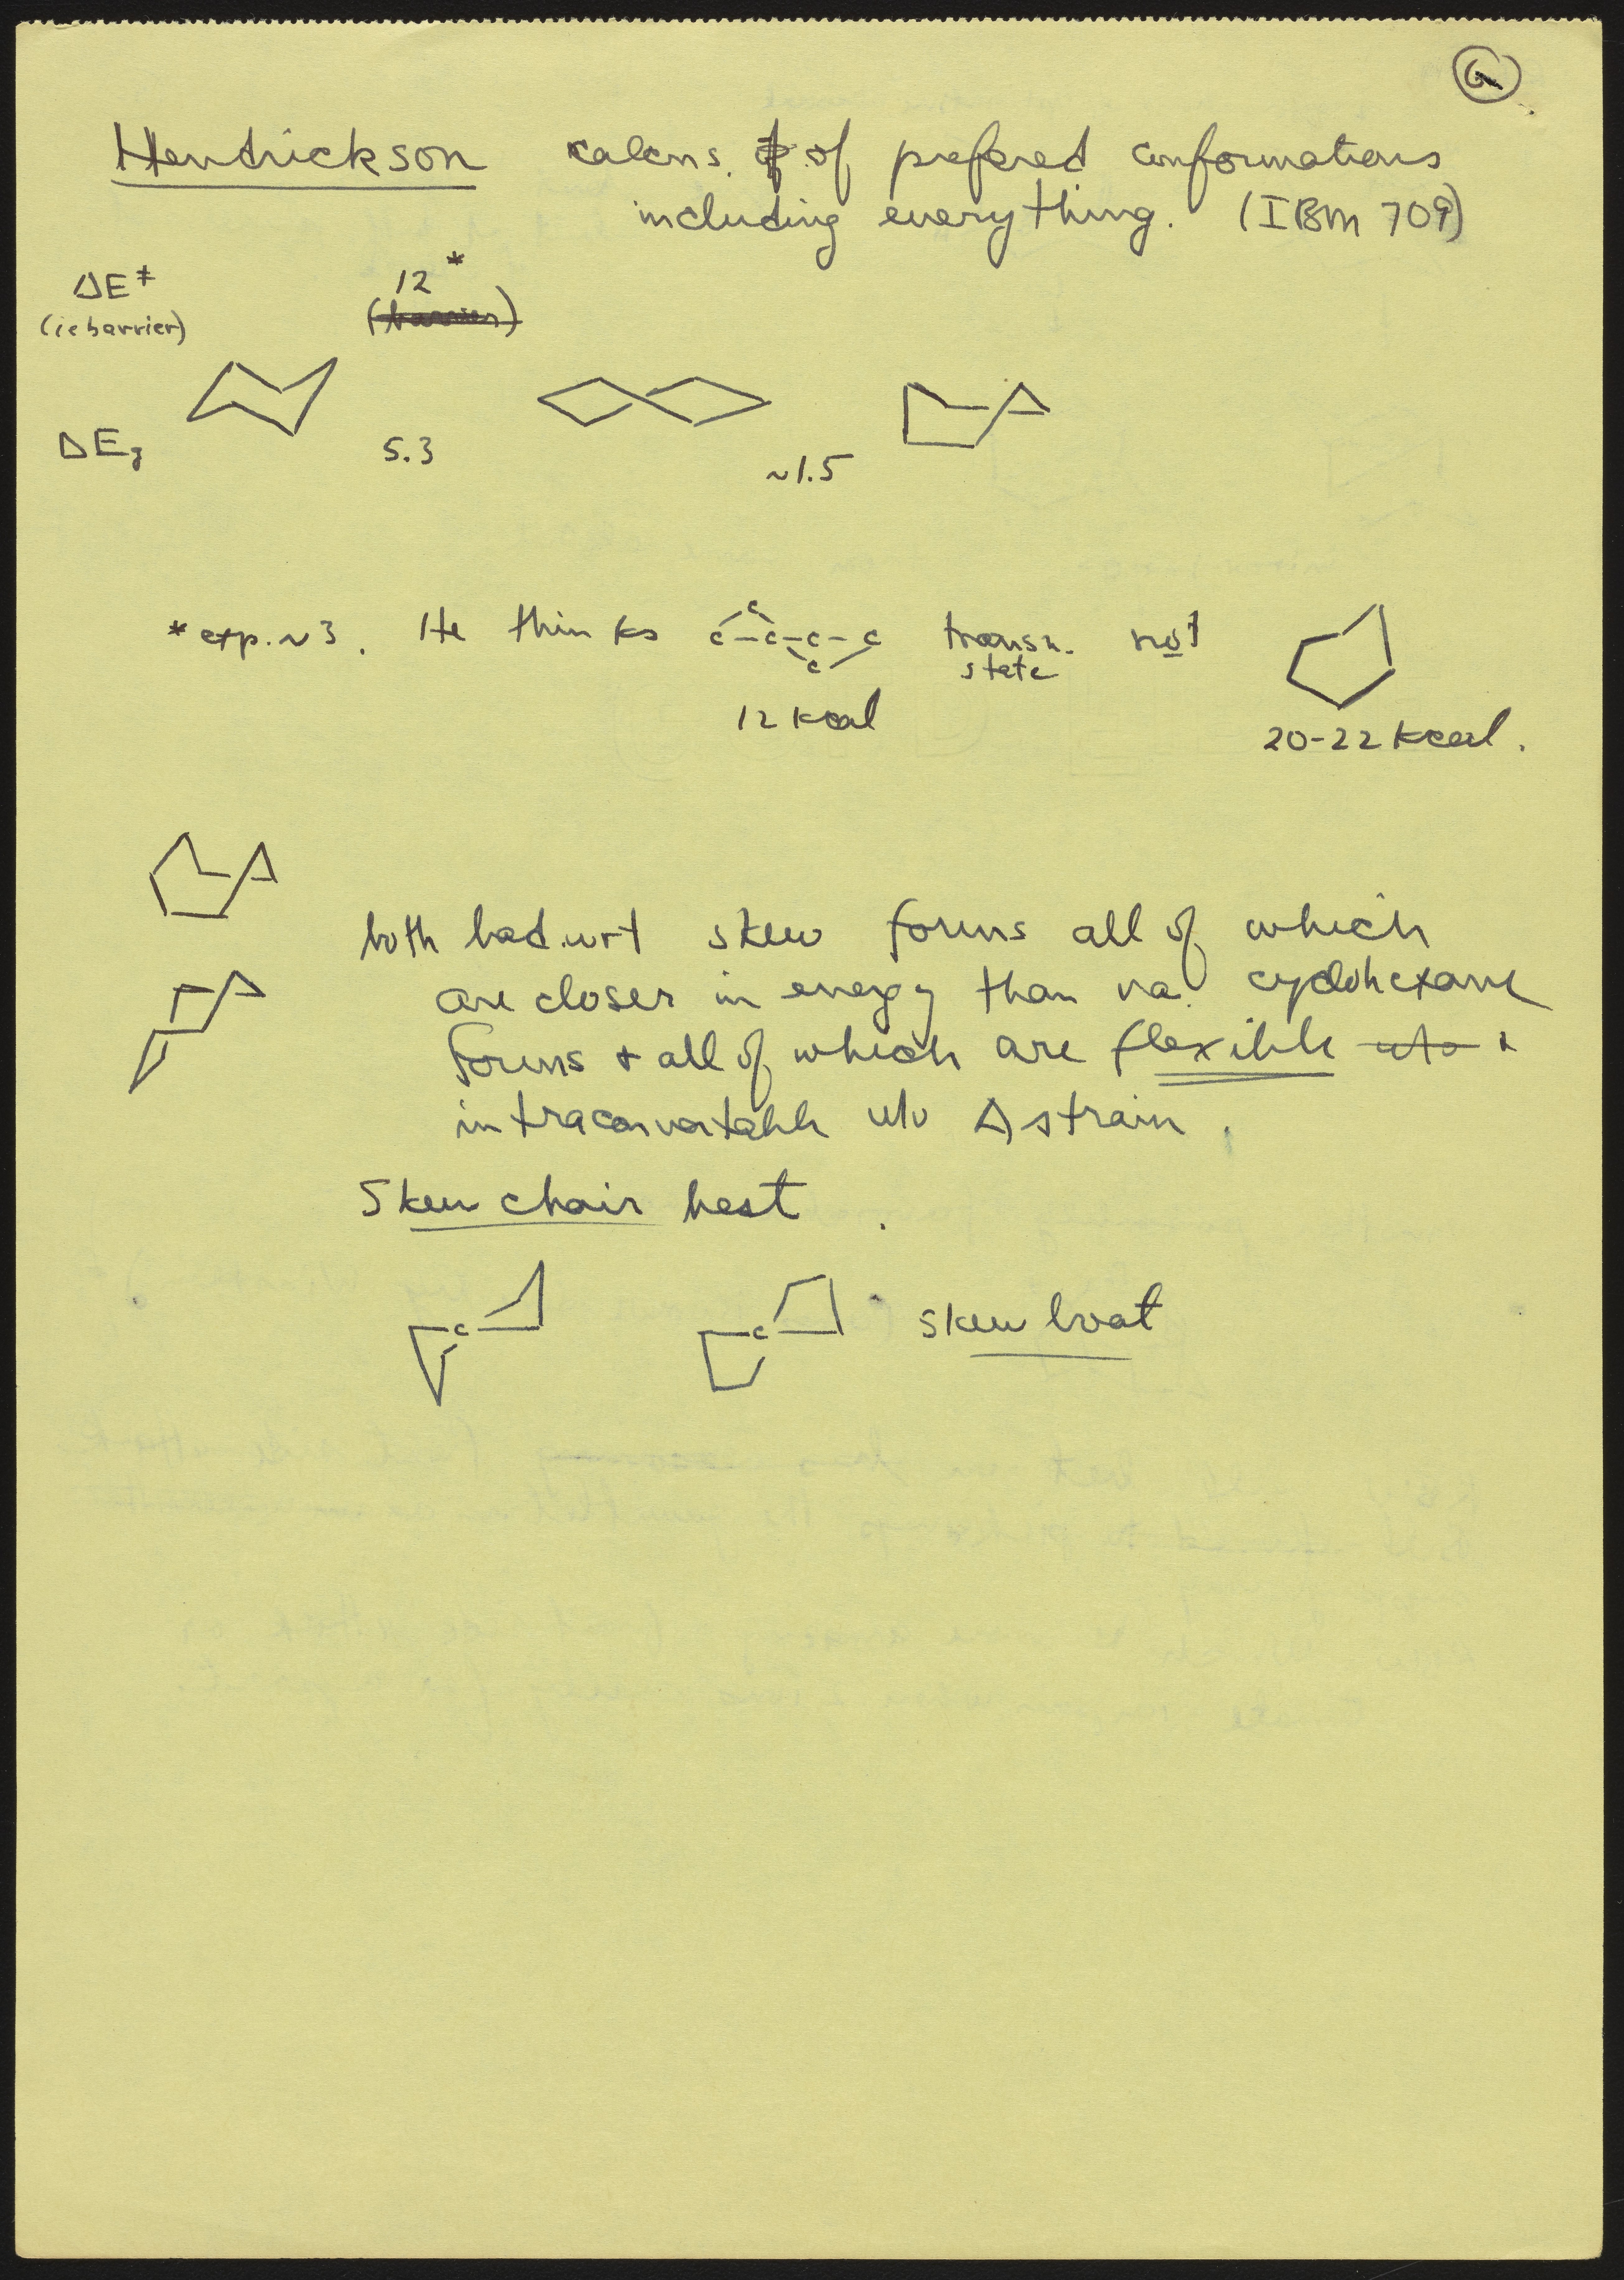 6
Hendrickson calcns. of prefered conformations
including everything. (IBM 709)
ΔE‡ 12 *
(ie barrier) (barrier)
ΔE 5.3 ~1.5
* exp. ~ 3. He thinks C-C-C-C C C transn. state not
12 kcal 20-22 kcal.
both bad wrt skew forms all of which
are closer in energy than va. cyclohexane
forms + all of which are flexible w/o +
intraconvertable w/o Δ strain.
Skew chair best
C C skew boat